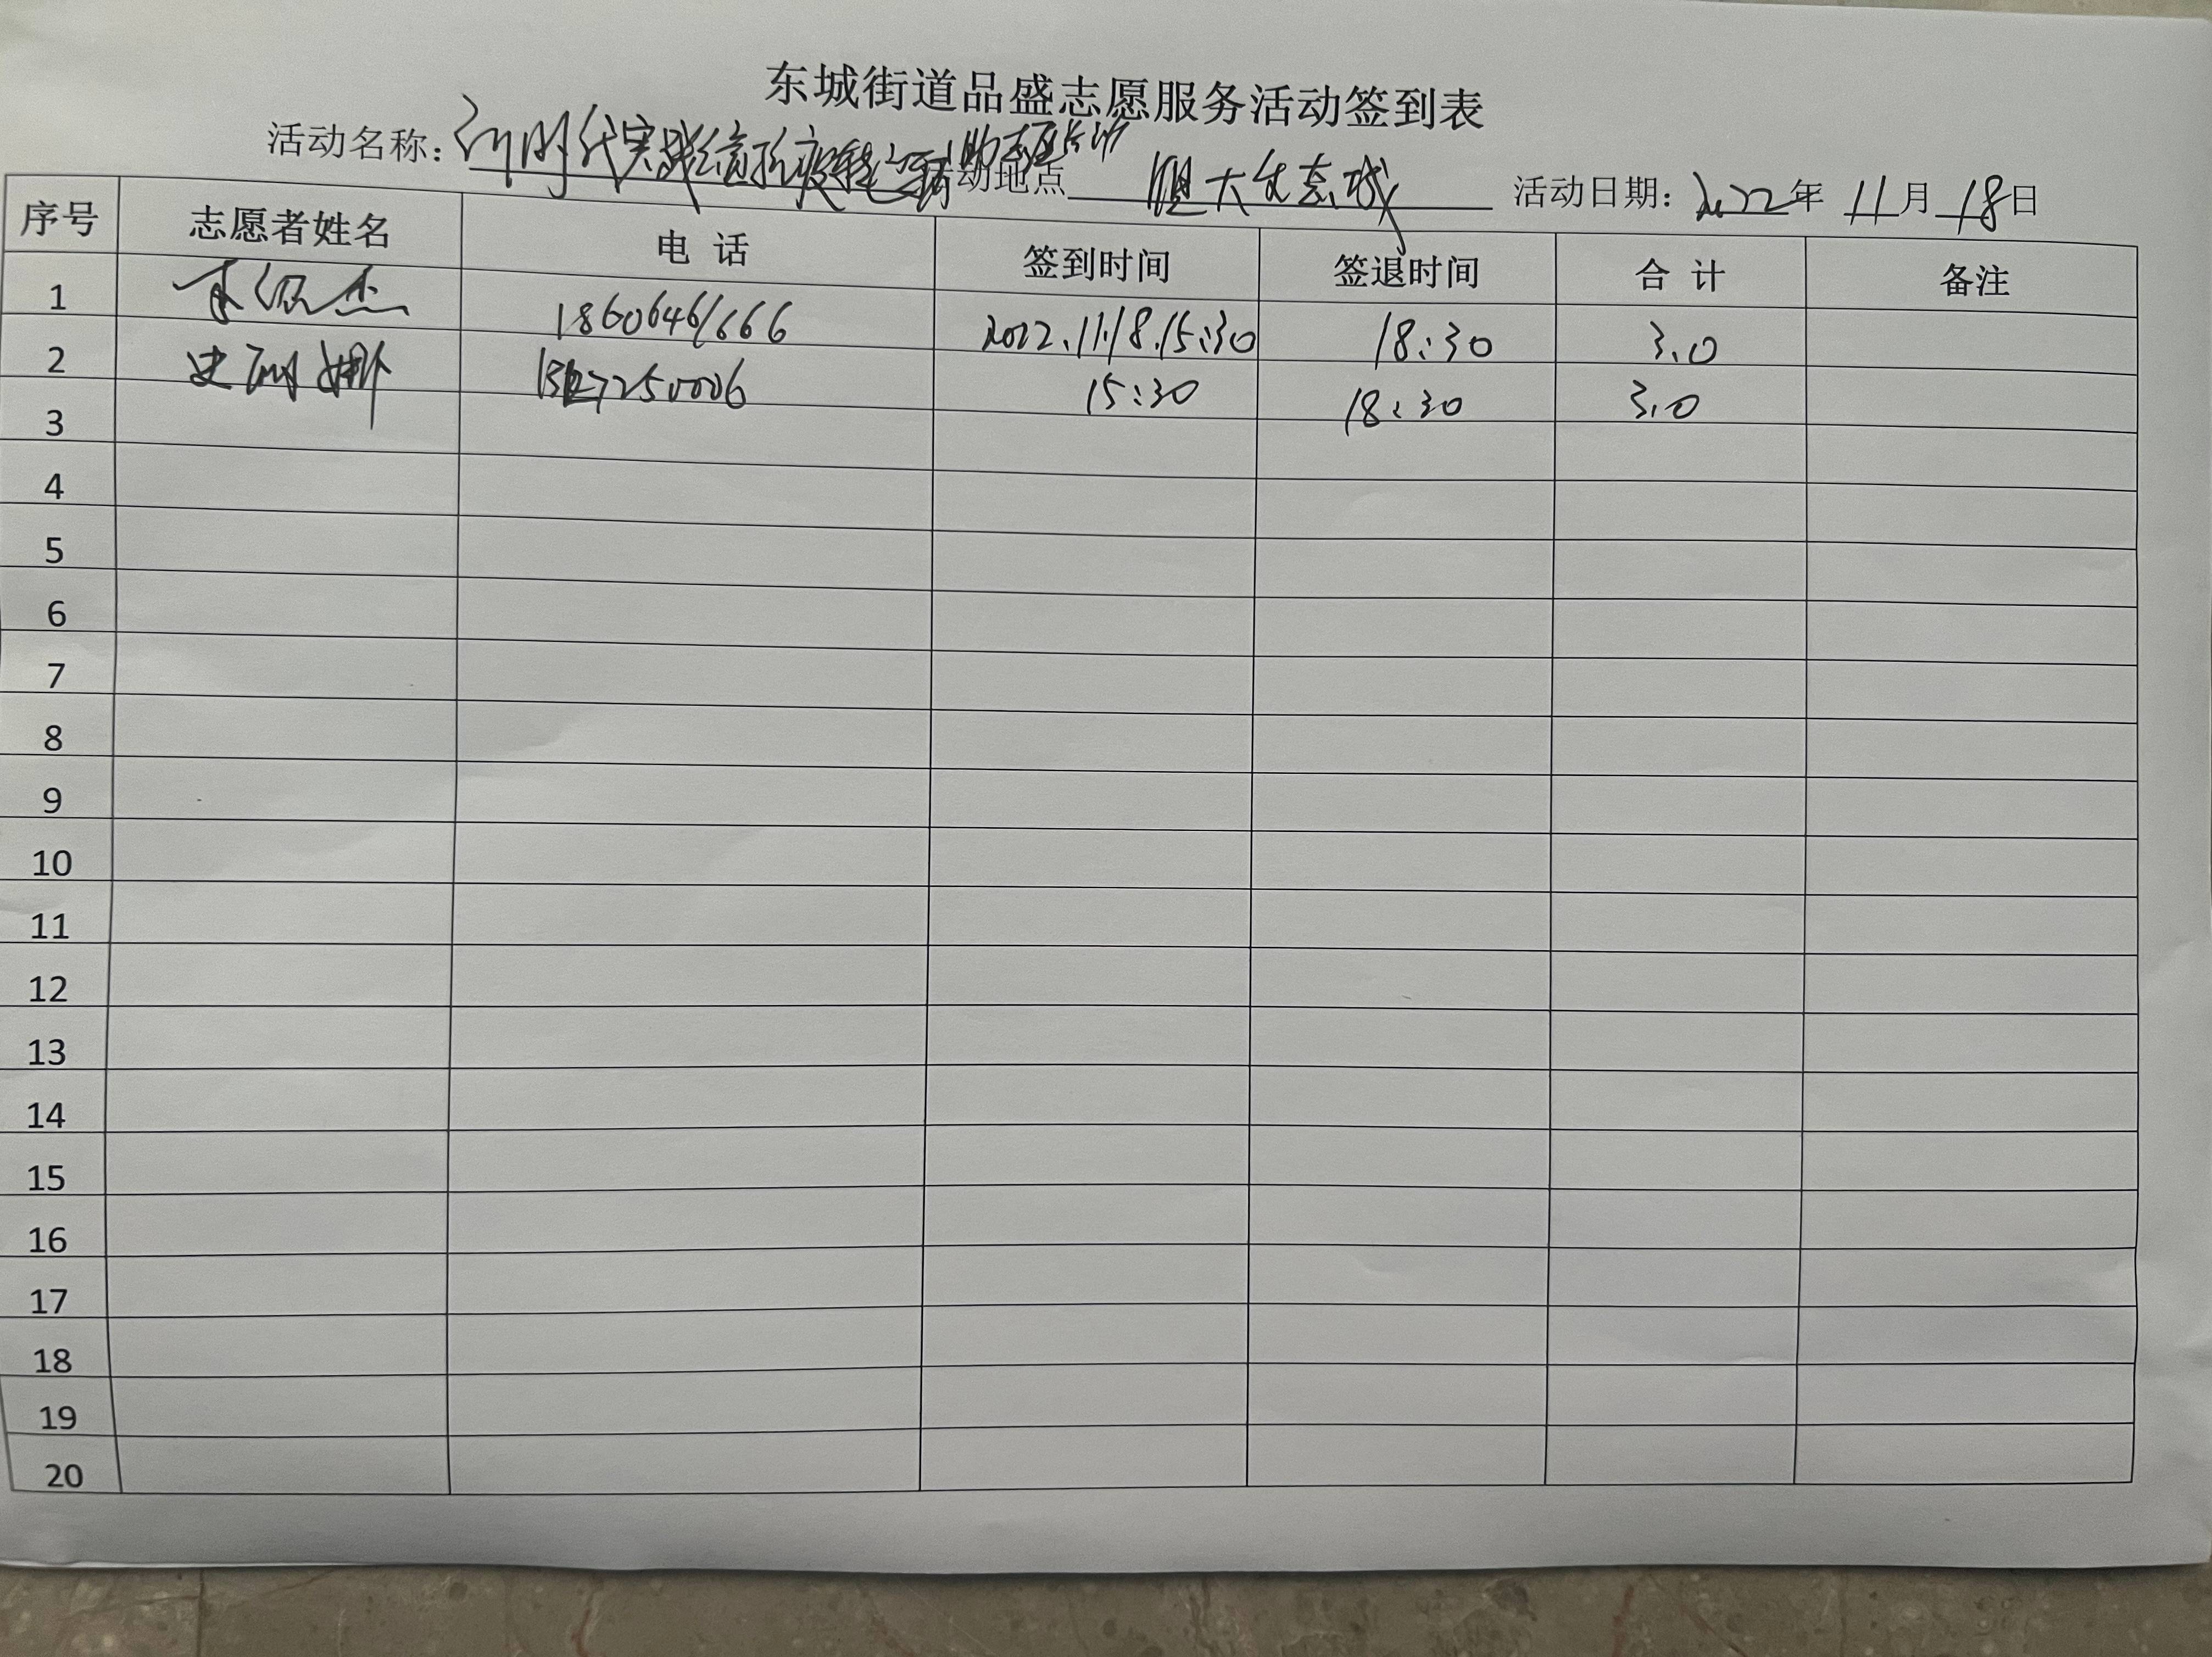 东城街道品盛志愿服务活动签到表
活动名称：新时代实践 抗疫 活动地点 恒大生态城 活动日期：2022年 11月 18日
序号 志愿者姓名 电 话 签到时间 签退时间 合 计 备注
1 18606461666 2022.11.18.15:30 18:30 3.0
2 史丽娜 15:30 18:30 3.0
3
4
5
6
7
8
9
10
11
12
13
14
15
16
17
18
19
20